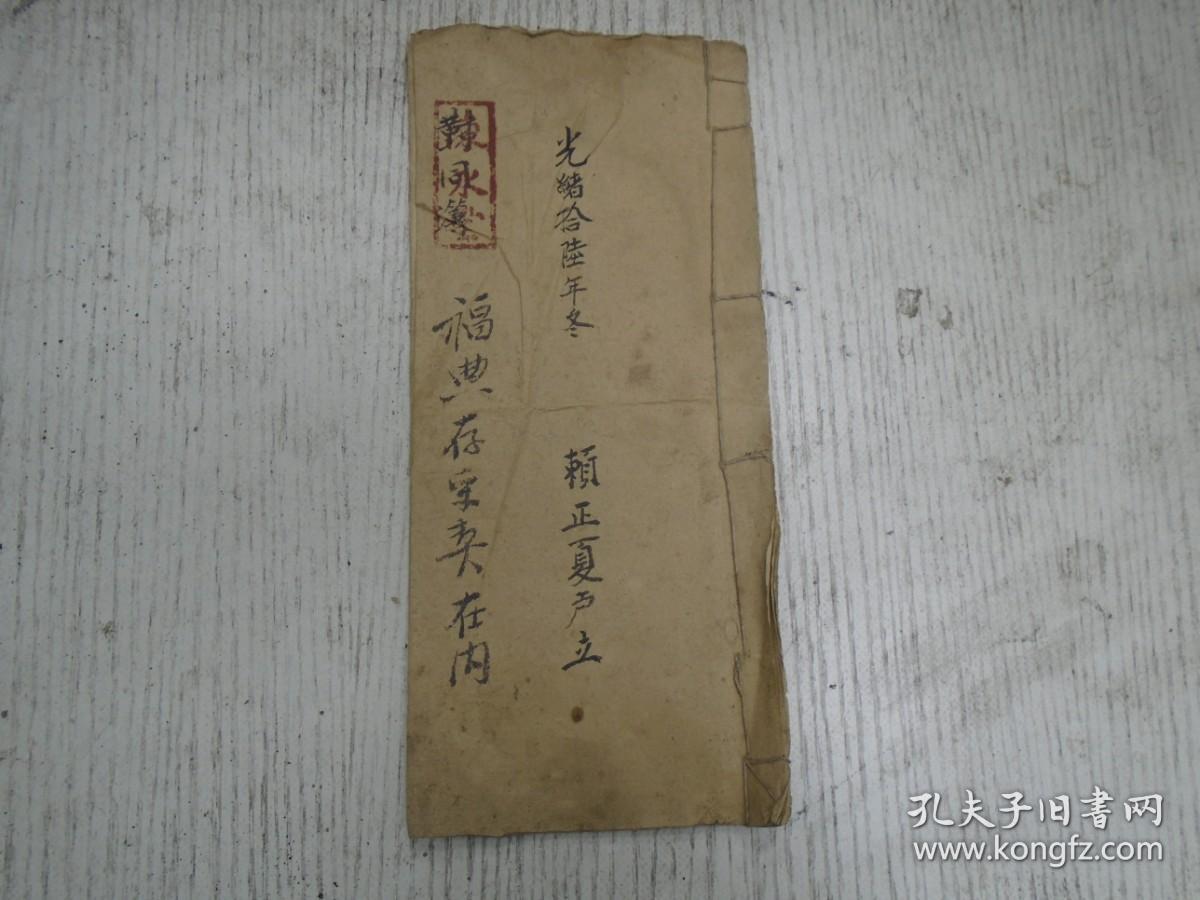 光緒拾陸年冬
賴正夏户立
福典存來契在内
孔夫子旧書网
www.kongfz.com